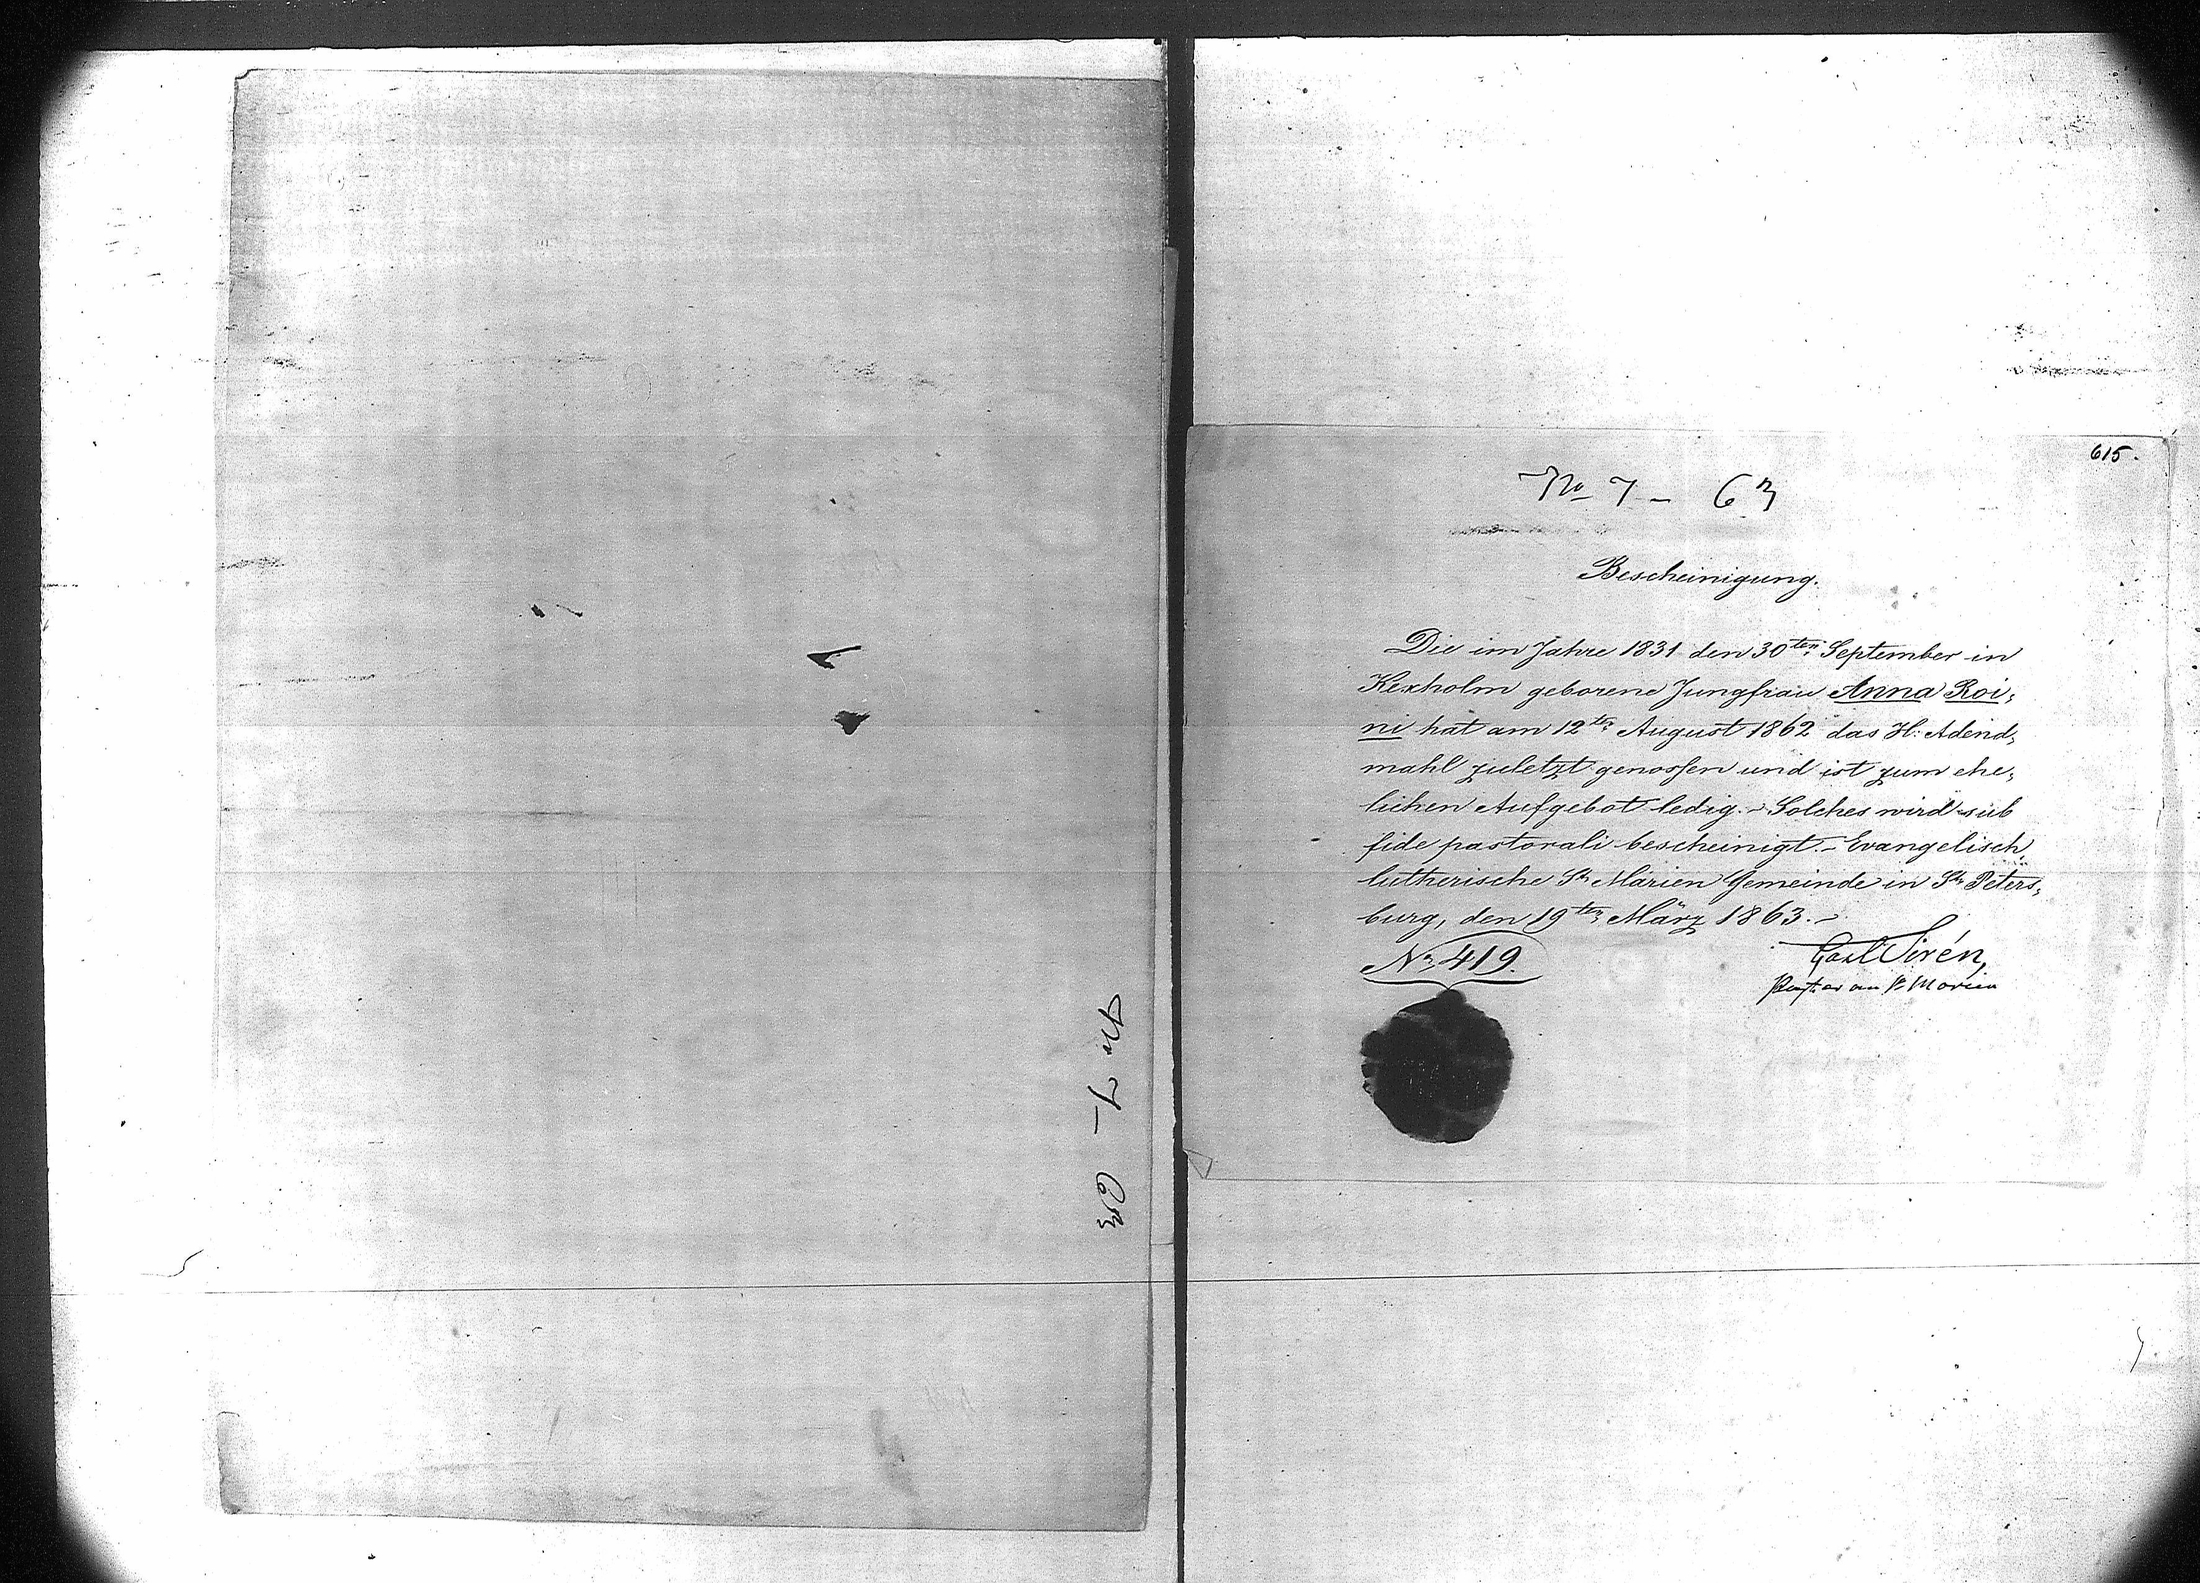 No 7 - 63
615.
No 7 - 63
Bescheinigung.
Die im Jahre 1831 den 30ten September in
Kexholm geborene Jungfrau Anna Roi,
ni hat am 12ten August 1862 das H: Abend,
mahl zuletzt genossen und ist zum ehe,
lichen Aufgebot ledig. - Solches wird sub
fide pastorali bescheinigt. - Evangelisch,
lutherische St. Marien Gemeinde in St. Peters,
burg, den 19ten März 1863. -
No 419.
Carl Sirén,
Pastor an St Marien